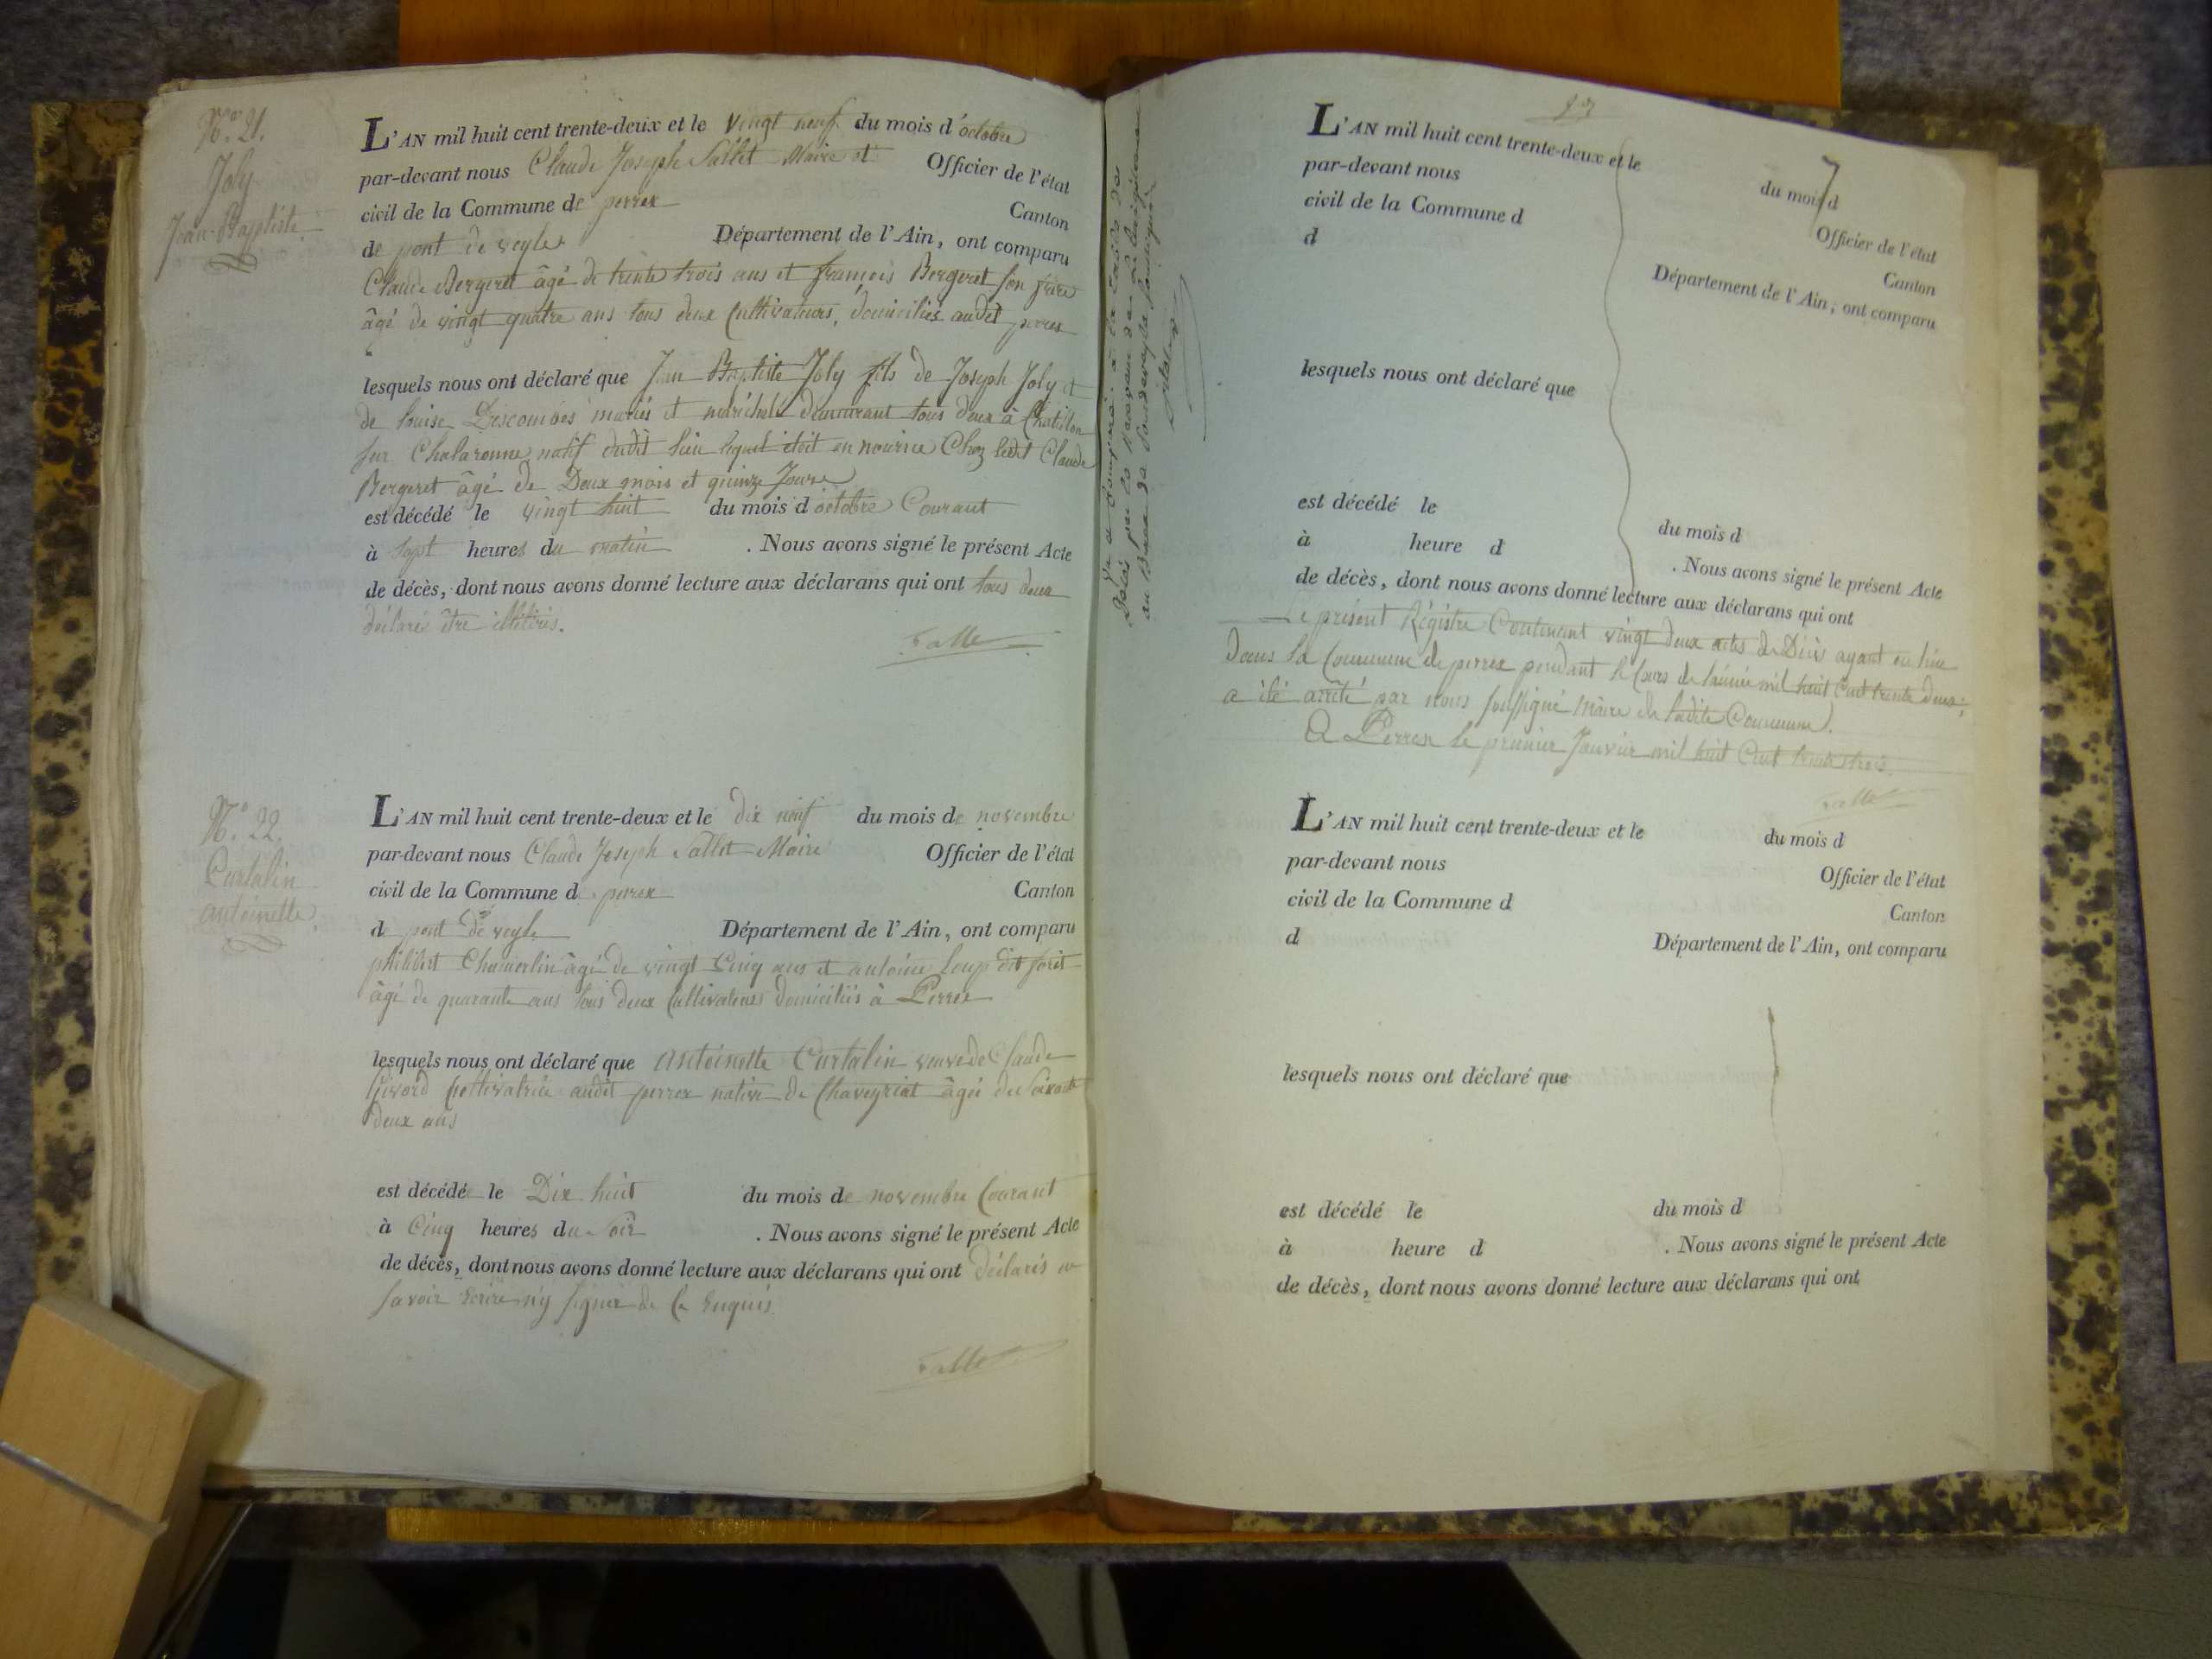 N.° 21.
Joly
Jean-Baptiste
L'AN mil huit cent trente-deux et le vingt neuf du mois d'octobre
par-devant nous Claude Joseph Sallet Maire et Officier de l'état
civil de la Commune de perrex Canton
de pont de veyle Département de l'Ain, ont comparu
Claude Bergeret âgé de trente trois ans et françois Bergeret son frère
âgé de vingt quatre ans tous deux Cultivateurs, domiciliés audit perrex
lesquels nous ont déclaré que Jean Baptiste Joly fils de Joseph Joly et
de Louise Descombes mariés et demeurant tous deux à Chatillon
sur Chalaronne natif dudit lieu lequel étoit en nourice Chez ledit Claude
Bergeret âgé de Deux mois et quinze Jours
est décédé le vingt huit du mois d'octobre Courant
à sept heures du matin . Nous avons signé le présent Acte
de décès, dont nous avons donné lecture aux déclarans qui ont tous deux
déclaré être illétirés.
Sallet
N.° 22.
Curtalin
antoinette
L'AN mil huit cent trente-deux et le dix neuf du mois de novembre
par-devant nous Claude Joseph Sallet Maire Officier de l'état
civil de la Commune d perrex Canton
d pont de veyle Département de l'Ain, ont comparu
philibert Chamerlin âgé de vingt Cinq ans et antoine Loup dit forêt
âgé de quarante ans tous deux Cultivateurs domiciliés à Perrex
lesquels nous ont déclaré que antoinette Curtalin veuve de Claude
Cultivatrice audit perrex native de Chaveyriat âgée de Soixante
deux ans
est décédé le Dix huit du mois de novembre Courant
à Cinq heures du soir . Nous avons signé le présent Acte
de décès, dont nous avons donné lecture aux déclarans qui ont déclarés ne
savoir Ecrire n'y signer de Ce Enquis
Sallet
L'AN mil huit cent trente-deux et le du mois d
par-devant nous Officier de l'état
civil de la Commune d Canton
d Département de l'Ain, ont comparu
lesquels nous ont déclaré que
est décédé le du mois d
à heure d . Nous avons signé le présent Acte
de décès, dont nous avons donné lecture aux déclarans qui ont
Le présent Régistre Contenant vingt deux actes de Décès ayant eu lieu
Dans la Commune de perrex pendant le Cours de l'année mil huit Cent trente deux;
a été arrêté par nous soussigné Maire de ladite Commune.
A Perrex le premier Janvier mil huit Cent trente trois.
Sallet
L'AN mil huit cent trente-deux et le du mois d
par-devant nous Officier de l'état
civil de la Commune d Canton
d Département de l'Ain, ont comparu
lesquels nous ont déclaré que
est décédé le du mois d
à heure d . Nous avons signé le présent Acte
de décès, dont nous avons donné lecture aux déclarans qui ont